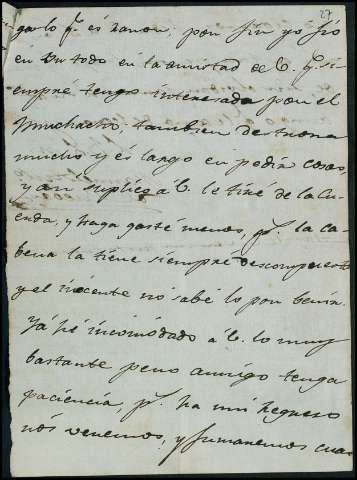 27
garlo q.e es razon, por fin yo fio
en un todo en la amistad de V. q.e si
empre tengo interesada por el
muchacho, tambien detrona
mucho y es largo en pedir cosas,
y asi suplico á V. le tiré de la cu
erda, y haga gasté menos, p.r la ca
beza la tiene siempré descompuesta
y el inocente nó sabé lo por benir.
Yá hé incomodado a V. lo muy
bastante pero amigo tenga
paciencia, p.r ha mi regreso
nós veremos, y fumaremos cua